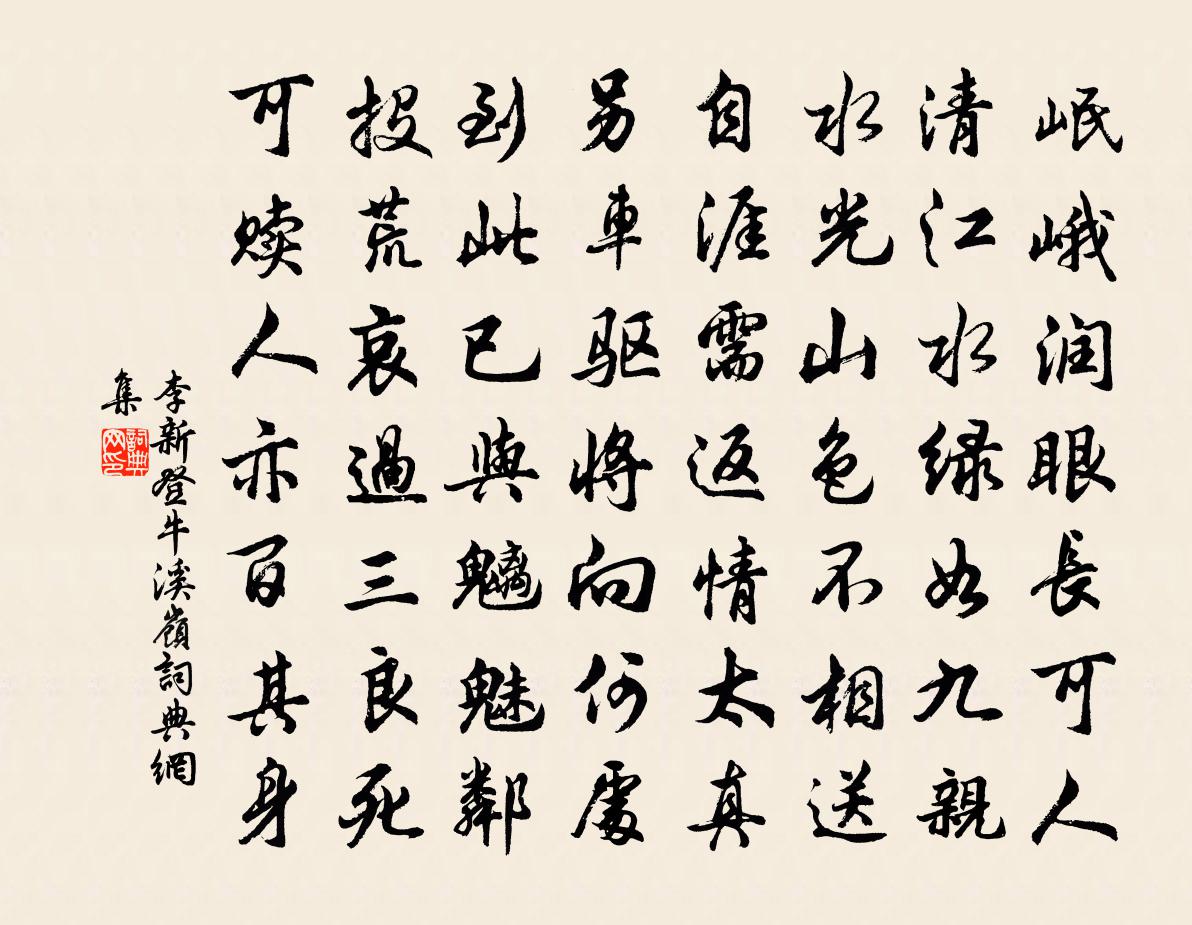 岷峨润眼長可人
清江水绿如九親
水光山色不相送
自涯需返情太真
另車驱将向何處
到此已與魑魅鄰
投荒哀過三良死
可赎人亦百其身
李新登牛溪嶺詞典網
集
詞典
网印